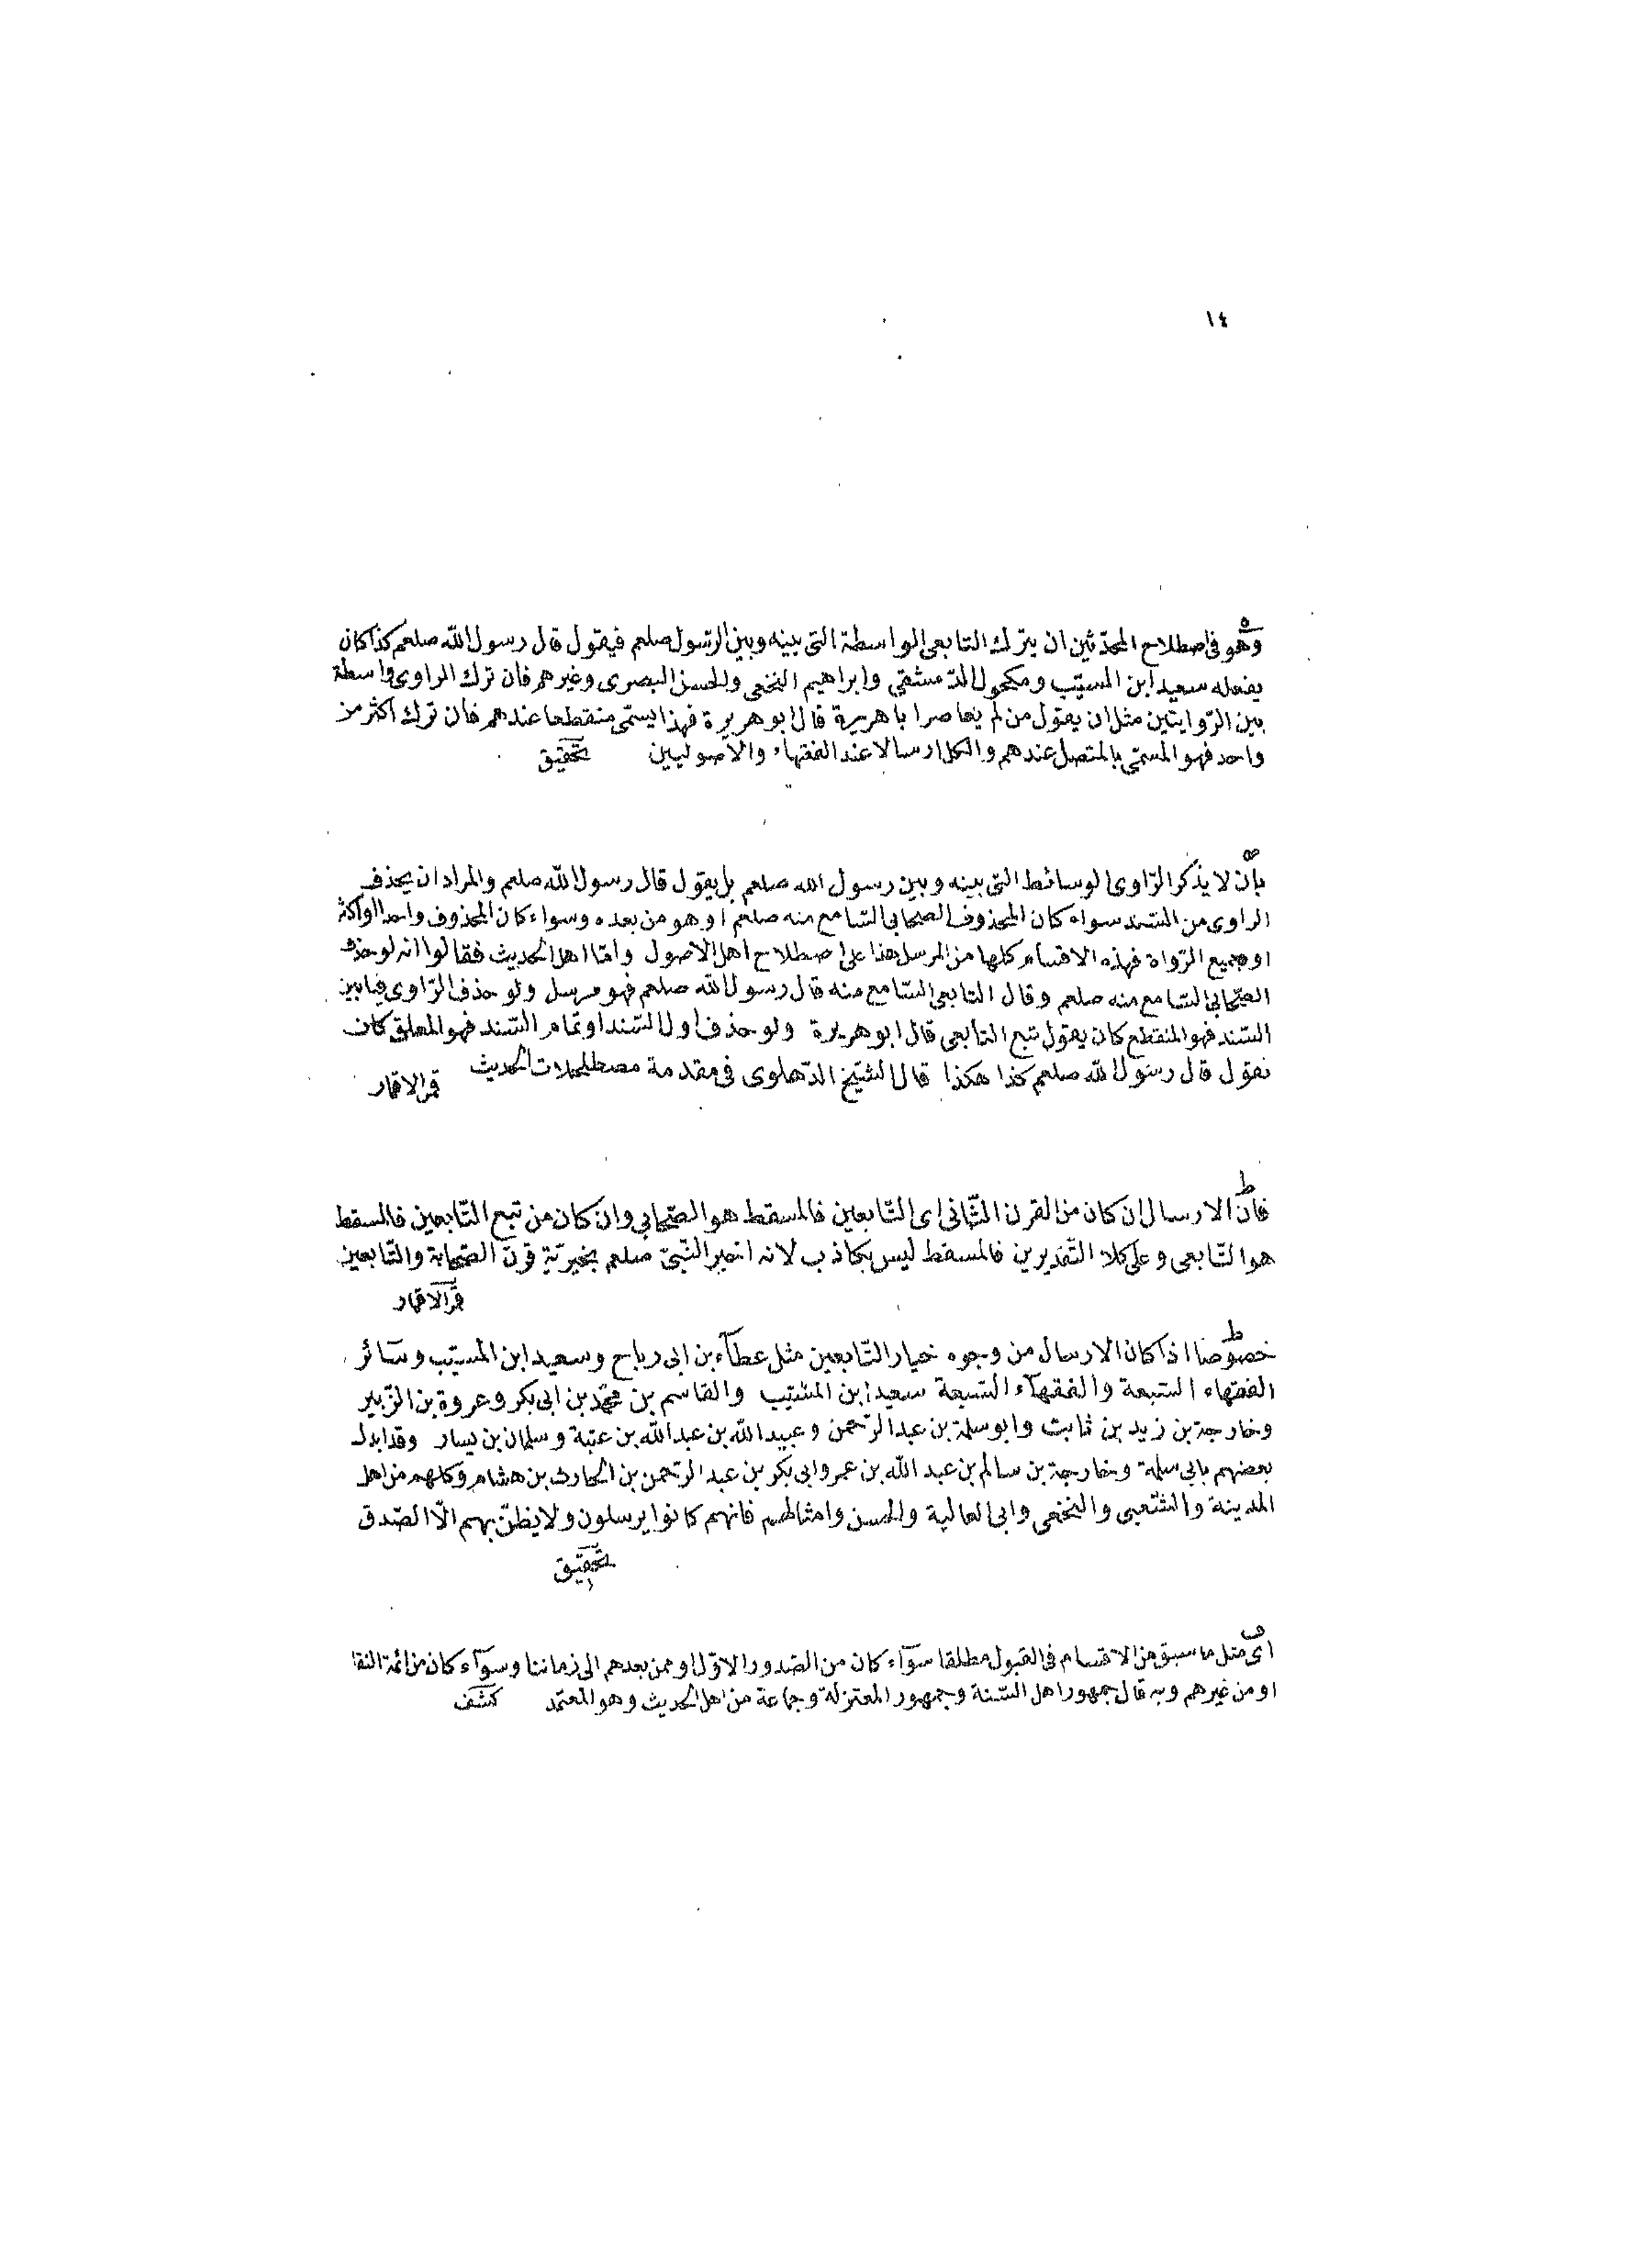 ١٤
وهو فى اصطلاح المحدّثين ان يترك التابعى الواسطة التى بينه وبين الرّسول صلعم فيقول قال رسول اللّه صلعم كذا كان
يفعله سعيد ابن المسيّب ومكحول الدّمشقي وابراهيم النخعى والحسن البصرى وغيرهم فان ترك الراوى واسطة
بين الرّوايتين مثل ان يقول من لم يعاصر ابا هريرة قال ابو هريرة فهذا يسمّى منقطعا عندهم فان ترك اكثر من
واحد فهو المسمّى بالمتصل عندهم والكل ارسالا عند الفقهاء والاصوليين تحقيق
بان لا يذكر الرّاوى الوسائط التى بينه وبين رسول الله صلعم بل يقول قال رسول اللّه صلعم والمراد ان يحذف
الراوى من السّند سواء كان المحذوف الصحابى السّامع منه صلعم او هو من بعده وسواء كان المحذوف واحدا او اكثر
او جميع الرّواة فهذه الاقسام كلها من المرسل هذا على اصطلاح اهل الاصول وامّا اهل الحديث فقالوا انه لو حذف
الصّحابى السّامع منه صلعم وقال التابعى السّامع منه قال رسول اللّه صلعم فهو مرسل ولو حذف الرّاوى فيما بين
السّند فهو المنقطع كان يقول تبع التابعى قال ابو هريرة ولو حذف اول السّند او تمام السّند فهو المعلق كان
نقول قال رسول اللّه صلعم كذا هكذا قال الشّيخ الدّهلوى فى مقدمة مصطلحات الحديث قمر الاقمار
فانّ الارسال ان كان من القرن الثّانى اى التّابعين فالمسقط هو الصّحابى وان كان من تبع التّابعين فالمسقط
هو التّابعى وعلى كلا التّقديرين فالمسقط ليس بكاذب لانه اخبر النّبىّ صلعم بخيريّة قرن الصّحابة والتّابعين
قمر الاقمار
خصوصا اذا كان الارسال من وجوه خيار التّابعين مثل عطآء بن ابى رباح وسعيد ابن المسيّب وسآئر
الفقهاء السّبعة والفقهآء السّبعة سعيد ابن المسيّب والقاسم بن محمّد بن ابى بكر وعروة بن الزّبير
وخارجة بن زيد بن ثابت وابو سلمة بن عبد الرّحمن وعبيد اللّه بن عبد اللّه بن عتبة وسلمان بن يسار وقد ابدل
بعضهم بابى سلمة وخارجة بن سالم بن عبد اللّه بن عمر وابى بكر بن عبد الرّحمن بن الحارث بن هشام وكلهم من اهل
المدينة والشّعبى والنخعى وابى العالية والحسن وامثالهم فانهم كانوا يرسلون ولا يظنّ بهم الّا الصّدق
تحقيق
اى مثل ما سبق من الاقسام فى القبول مطلقا سوآء كان من الصّدور الاوّل او ممن بعدهم الى زماننا وسوآء كان من ائمة النقل
او من غيرهم وبه قال جمهور اهل السّنة وجمهور المعتزلة وجماعة من اهل الحديث وهو المعتمد كشف